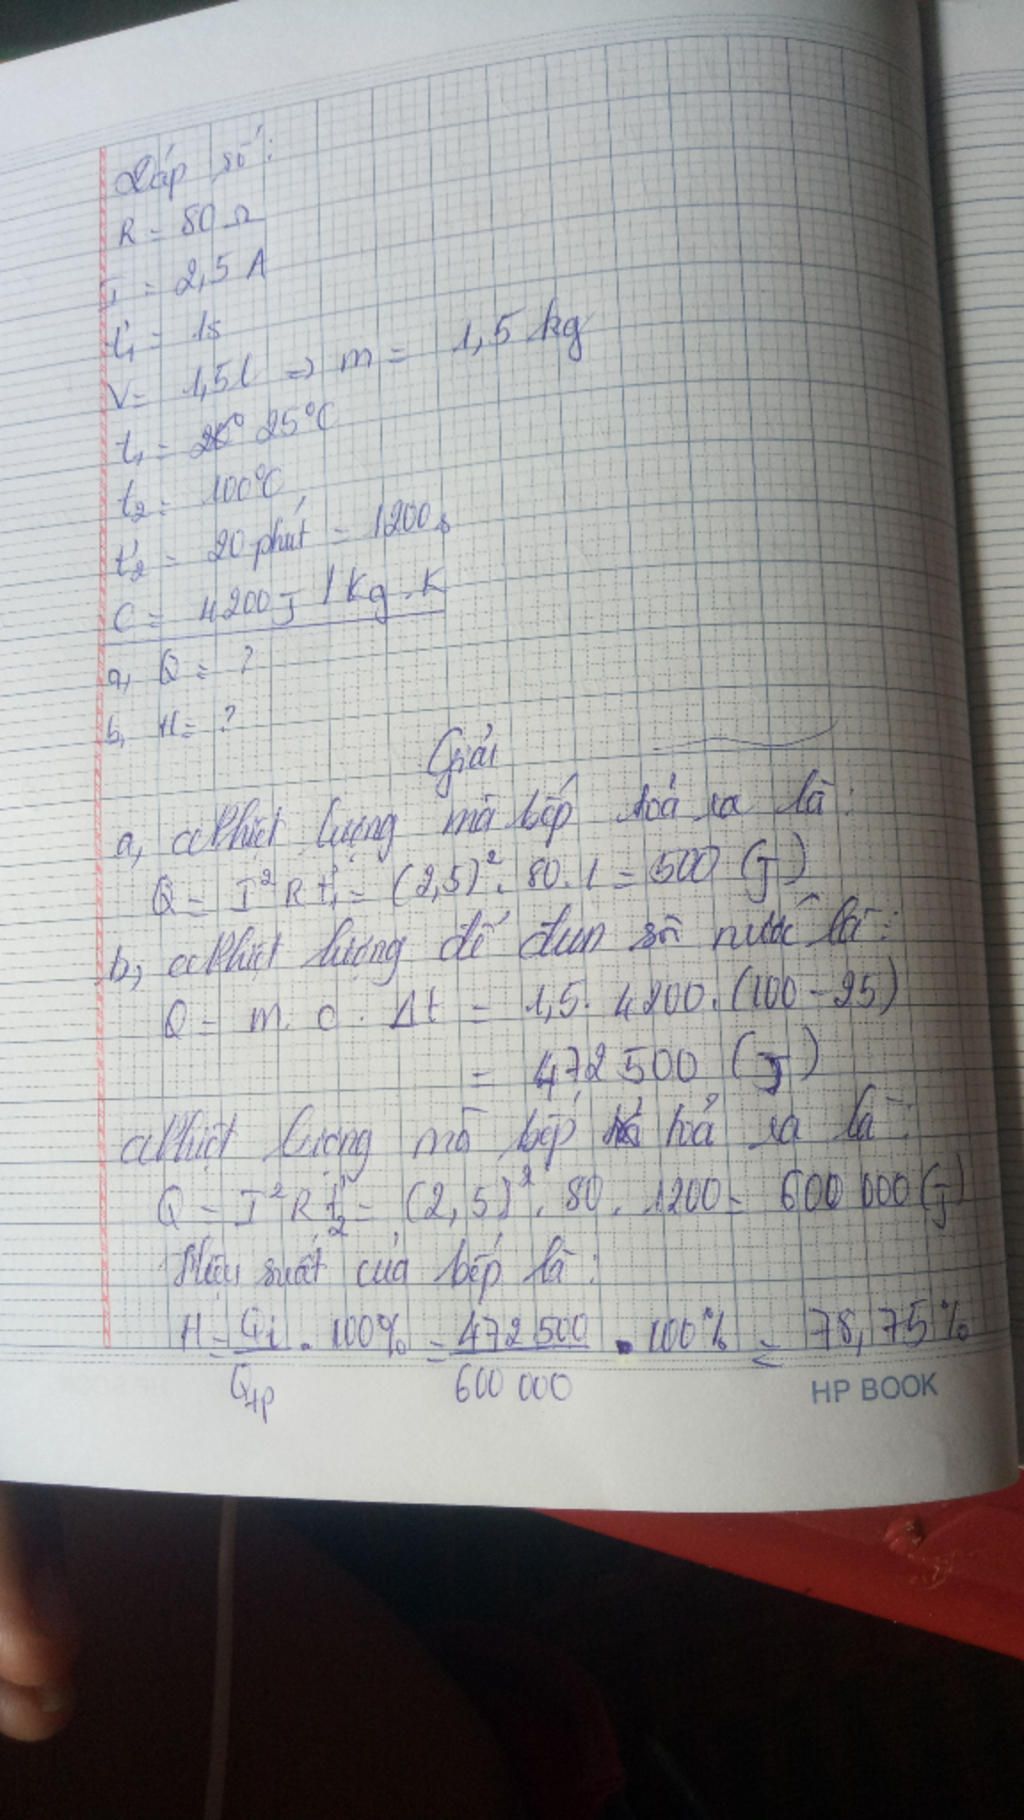 Đáp số:
R = 80 Ω
I = 2,5 A
t'₁ = 1s
V = 1,5l => m = 1,5 kg
t₁ = 25°C
t₂ = 100°C
t'₂ = 20 phút = 1200s
C = 4200J/Kg.K
a, Q = ?
b, H = ?
Giải
a, Nhiệt lượng mà bếp toả ra là:
Q = I²Rt'₁ = (2,5)². 80. 1 = 500 (J)
b, Nhiệt lượng để đun sôi nước là:
Q = m. c. Δt = 1,5. 4200. (100 - 25)
= 472500 (J)
Nhiệt lượng mà bếp toả ra là:
Q = I²Rt'₂ = (2,5)². 80. 1200 = 600 000 (J)
Hiệu suất của bếp là:
H = Qi/Qtp . 100% = 472500/600 000 . 100% = 78,75%
HP BOOK